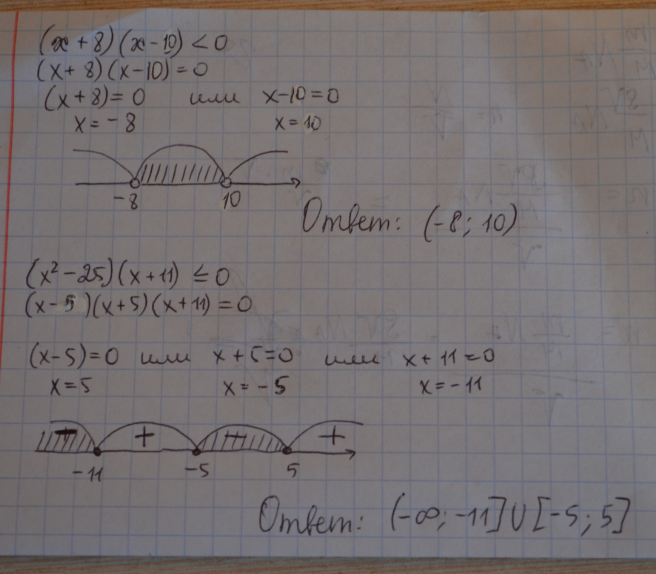 (x+8)(x-10)<0
(x+8)(x-10)=0
(x+8)=0 или x-10=0
x=-8 x=10
-8 10
Ответ: (-8; 10)
(x²-25)(x+11)≤0
(x-5)(x+5)(x+11)=0
(x-5)=0 или x+5=0 или x+11=0
x=5 x=-5 x=-11
- + - +
-11 -5 5
Ответ: (-∞; -11]∪[-5; 5]